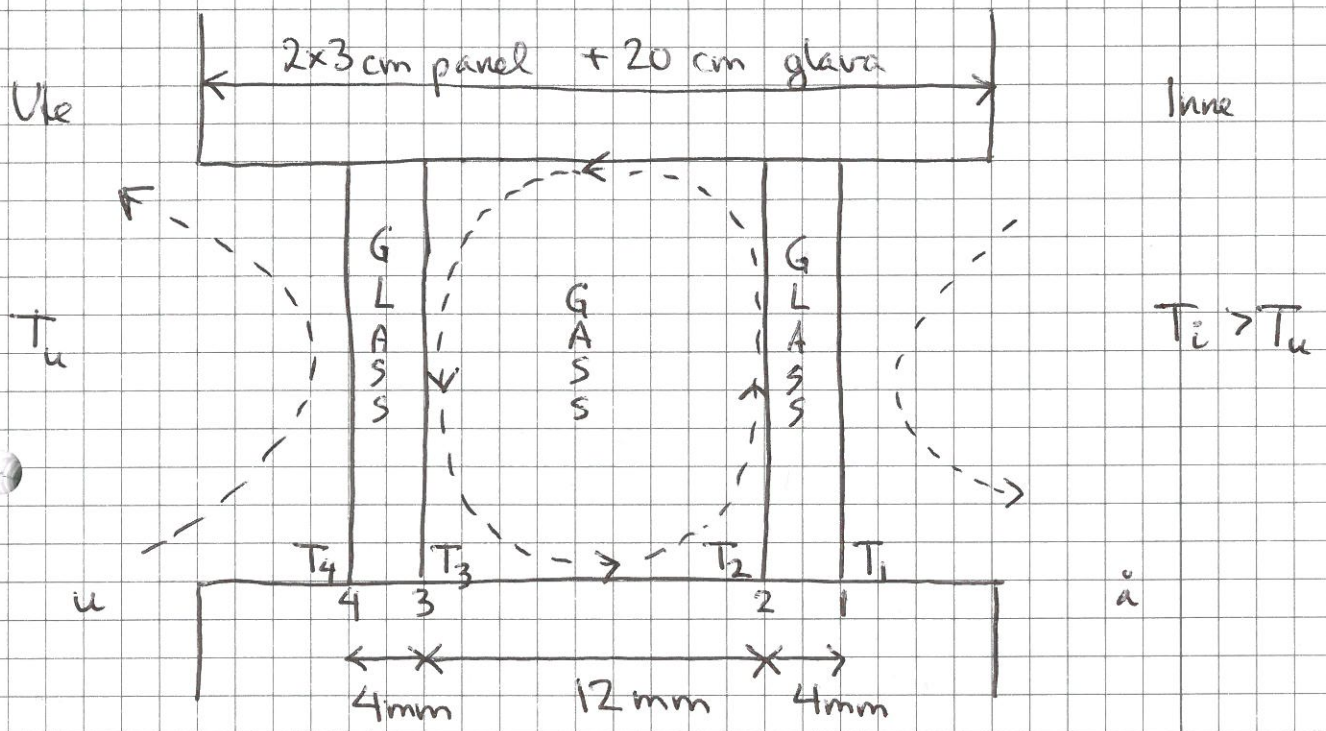 2x3 cm panel + 20 cm glava
Ute
Inne
GLASS
GASS
GLASS
Tu
Ti > Tu
T4 T3 T2 T1
u 4 3 2 1 å
4mm 12mm 4mm